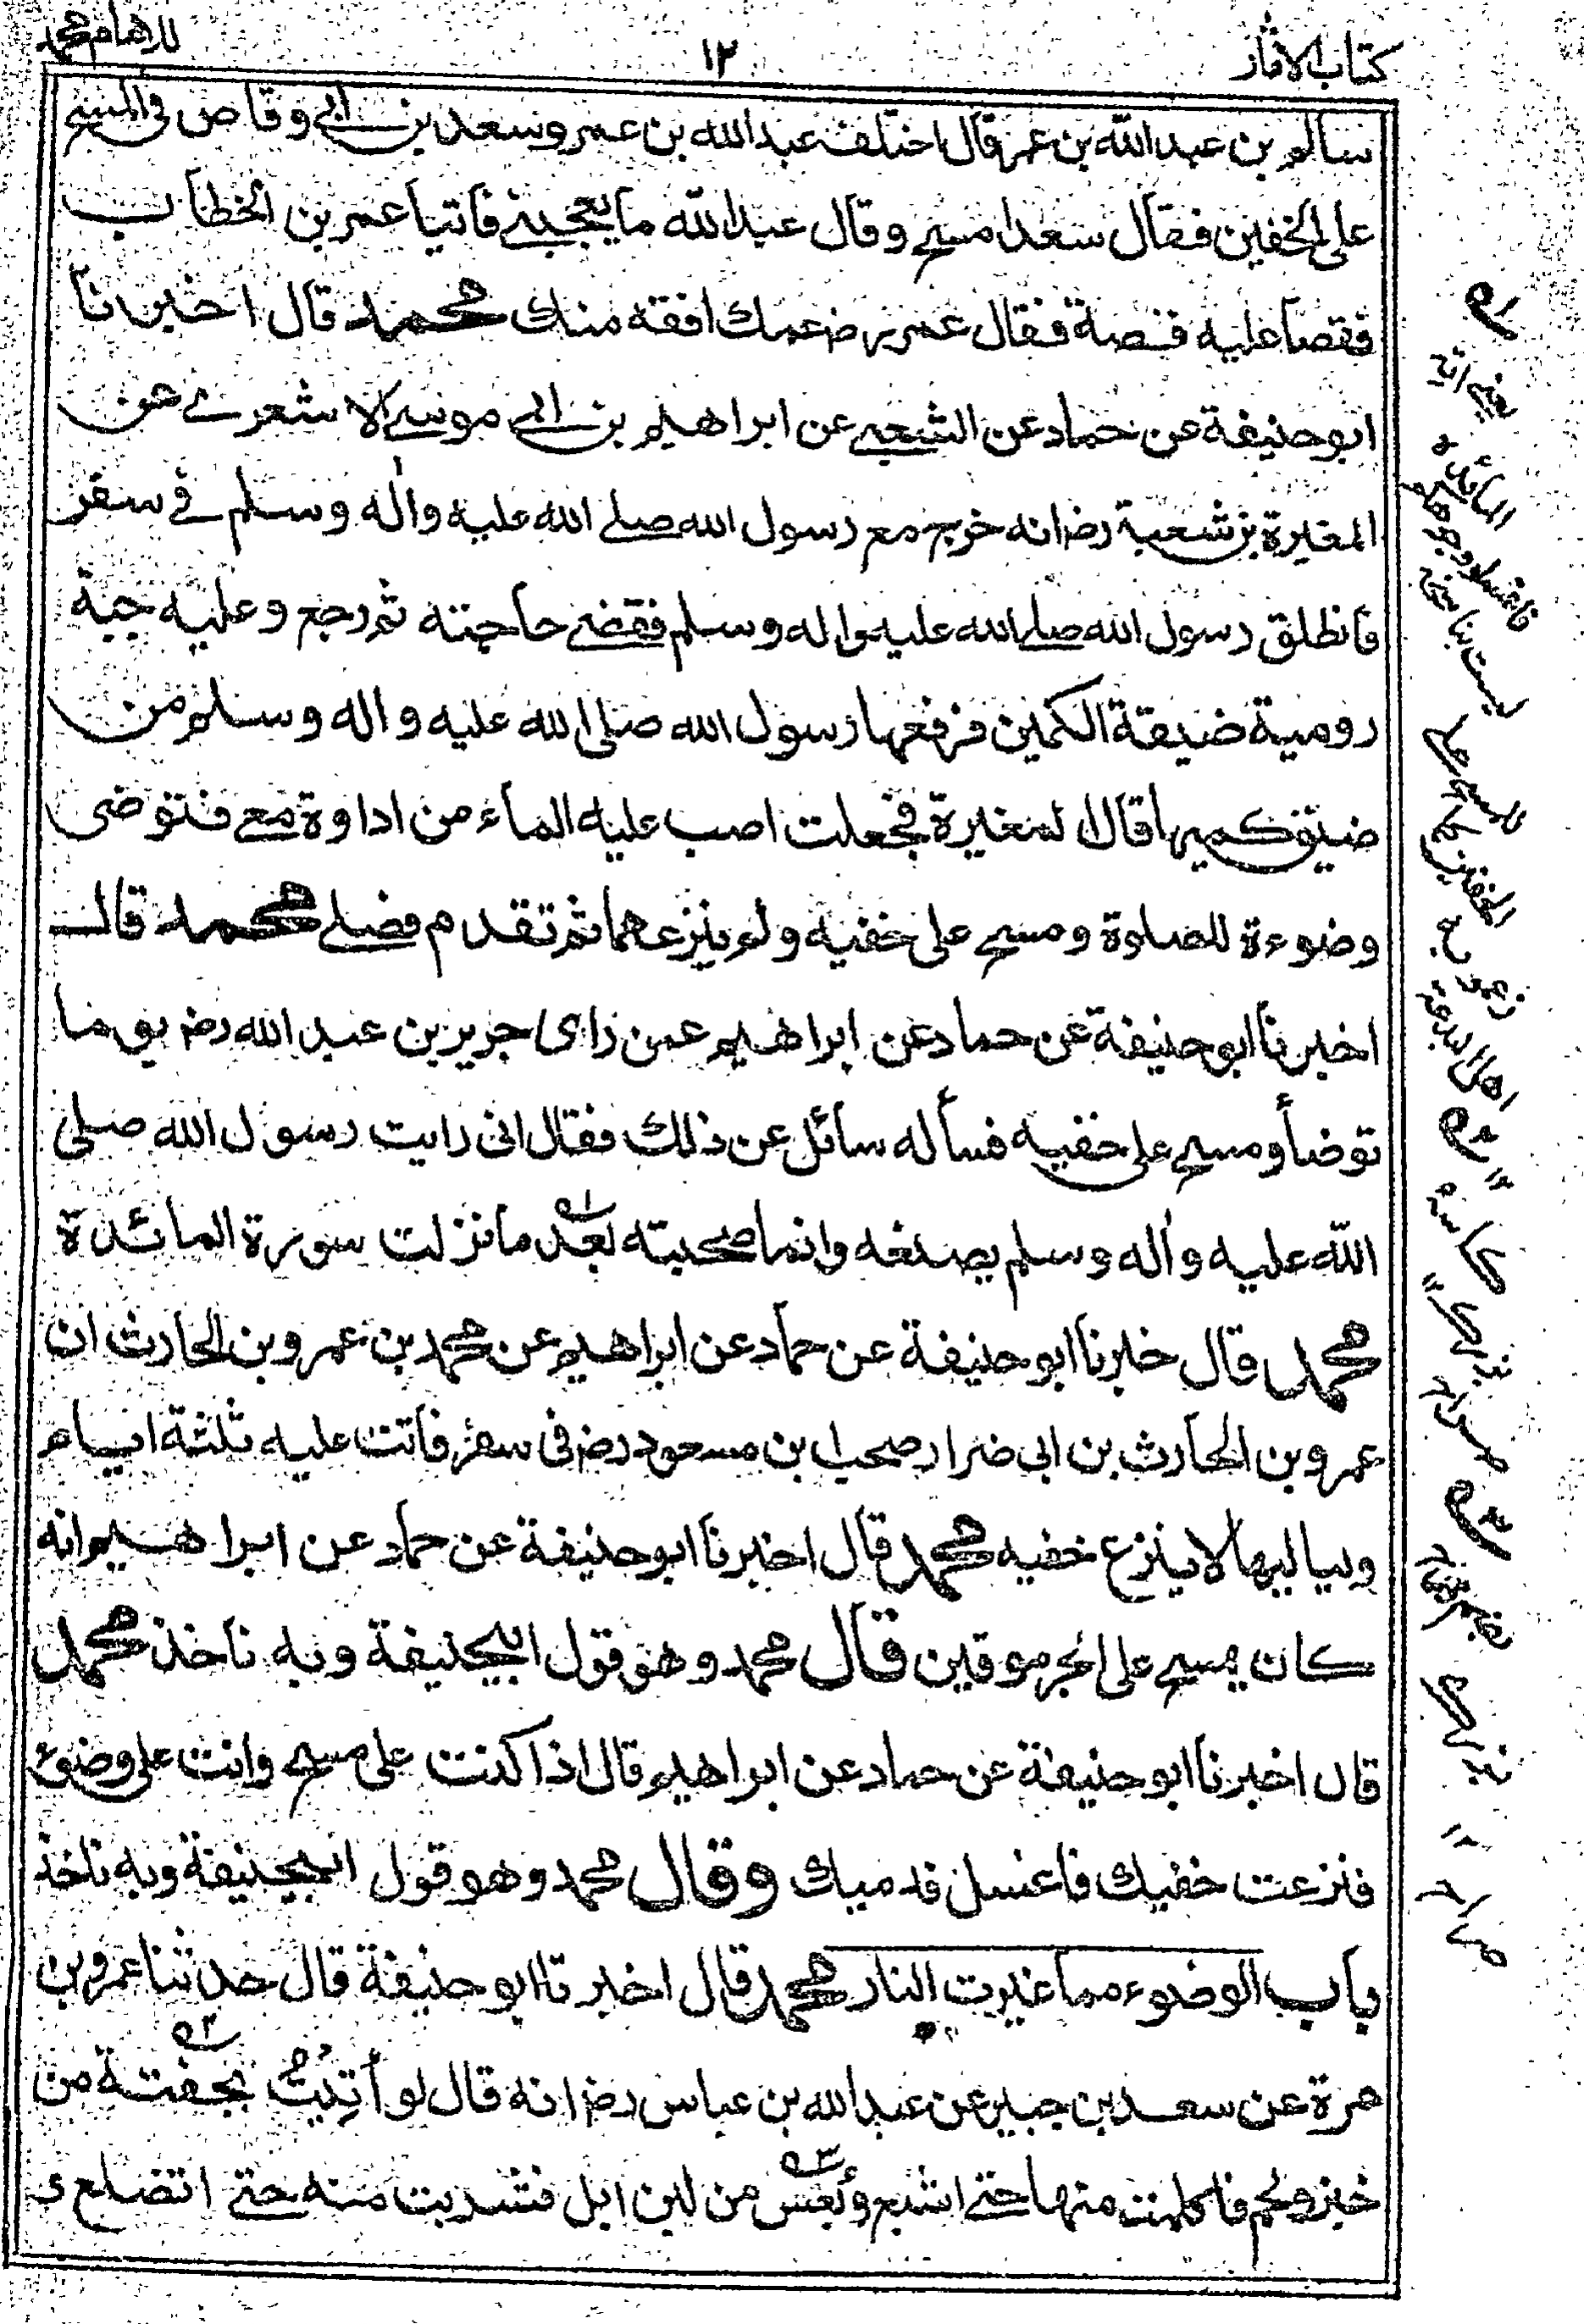 كتاب الآثار
١٢
للامام محمد
سالم بن عبد الله بن عمر قال اختلف عبد الله بن عمر وسعد بن ابي وقاص في المسح
على الخفين فقال سعد امسح وقال عبد الله ما يعجبني فاتيا عمر بن الخطاب
فقصا عليه قصة فقال عمر رض عمك افقه منك محمد قال اخبرنا
ابو حنيفة عن حماد عن الشعبي عن ابراهيم بن ابي موسى الاشعري عن
المغيرة بن شعبة رض انه خرج مع رسول الله صلى الله عليه واٰله وسلم في سفر
فانطلق رسول الله صلى الله عليه واله وسلم فقضى حاجته ثم رجع وعليه جبة
رومية ضيقة الكمين فرفعها رسول الله صلى الله عليه واله وسلم من
ضيق كميها قال المغيرة فجعلت اصب عليه الماء من اداوة معي فتوضى
وضوءة للصلوة ومسح على خفيه ولم ينزعهما ثم تقدم فصلى محمد قال
اخبرنا ابو حنيفة عن حماد عن ابراهيم عمن راى جرير بن عبد الله رض يوما
توضأ ومسح على خفيه فسأله سائل عن ذلك فقال انى رايت رسول الله صلى
الله عليه واٰله وسلم يصنعه وانما صحبته بعد ما نزلت سورة المائدة
محمد قال خبرنا ابو حنيفة عن حماد عن ابراهيم عن محمد بن عمرو بن الحارث ان
عمرو بن الحارث بن ابى ضرار صحب ابن مسعود رض فى سفر فاتت عليه ثلثة ايام
ولياليها لا ينزع خفيه محمد قال اخبرنا ابو حنيفة عن حماد عن ابراهيم انه
كان يمسح على الجرموقين قال محمد وهو قول ابيحنيفة وبه ناخذ محمد
قال اخبرنا ابو حنيفة عن حماد عن ابراهيم قال اذا كنت على مسح وانت على وضوء
فنزعت خفيك فاغسل قدميك وقال محمد وهو قول ابيحنيفة وبه ناخذ
باب الوضوء مما غيرت النار محمد قال اخبرنا ابو حنيفة قال حدثنا عمرو بن
مرة عن سعد بن جبير عن عبد الله بن عباس رض انه قال لو أُتِيتُ بجفنة من
خبز ولحم فاكلت منها حتى اشبع وبعس من لبن ابل فشربت منه حتى اتضلع و
له يعني اٰية
المائدة
فاغسلوا وجوهكم
ليست بناسخة
للمسح على
الخفين كما
زعم
اهل البدعة
كاسه
بزرگ